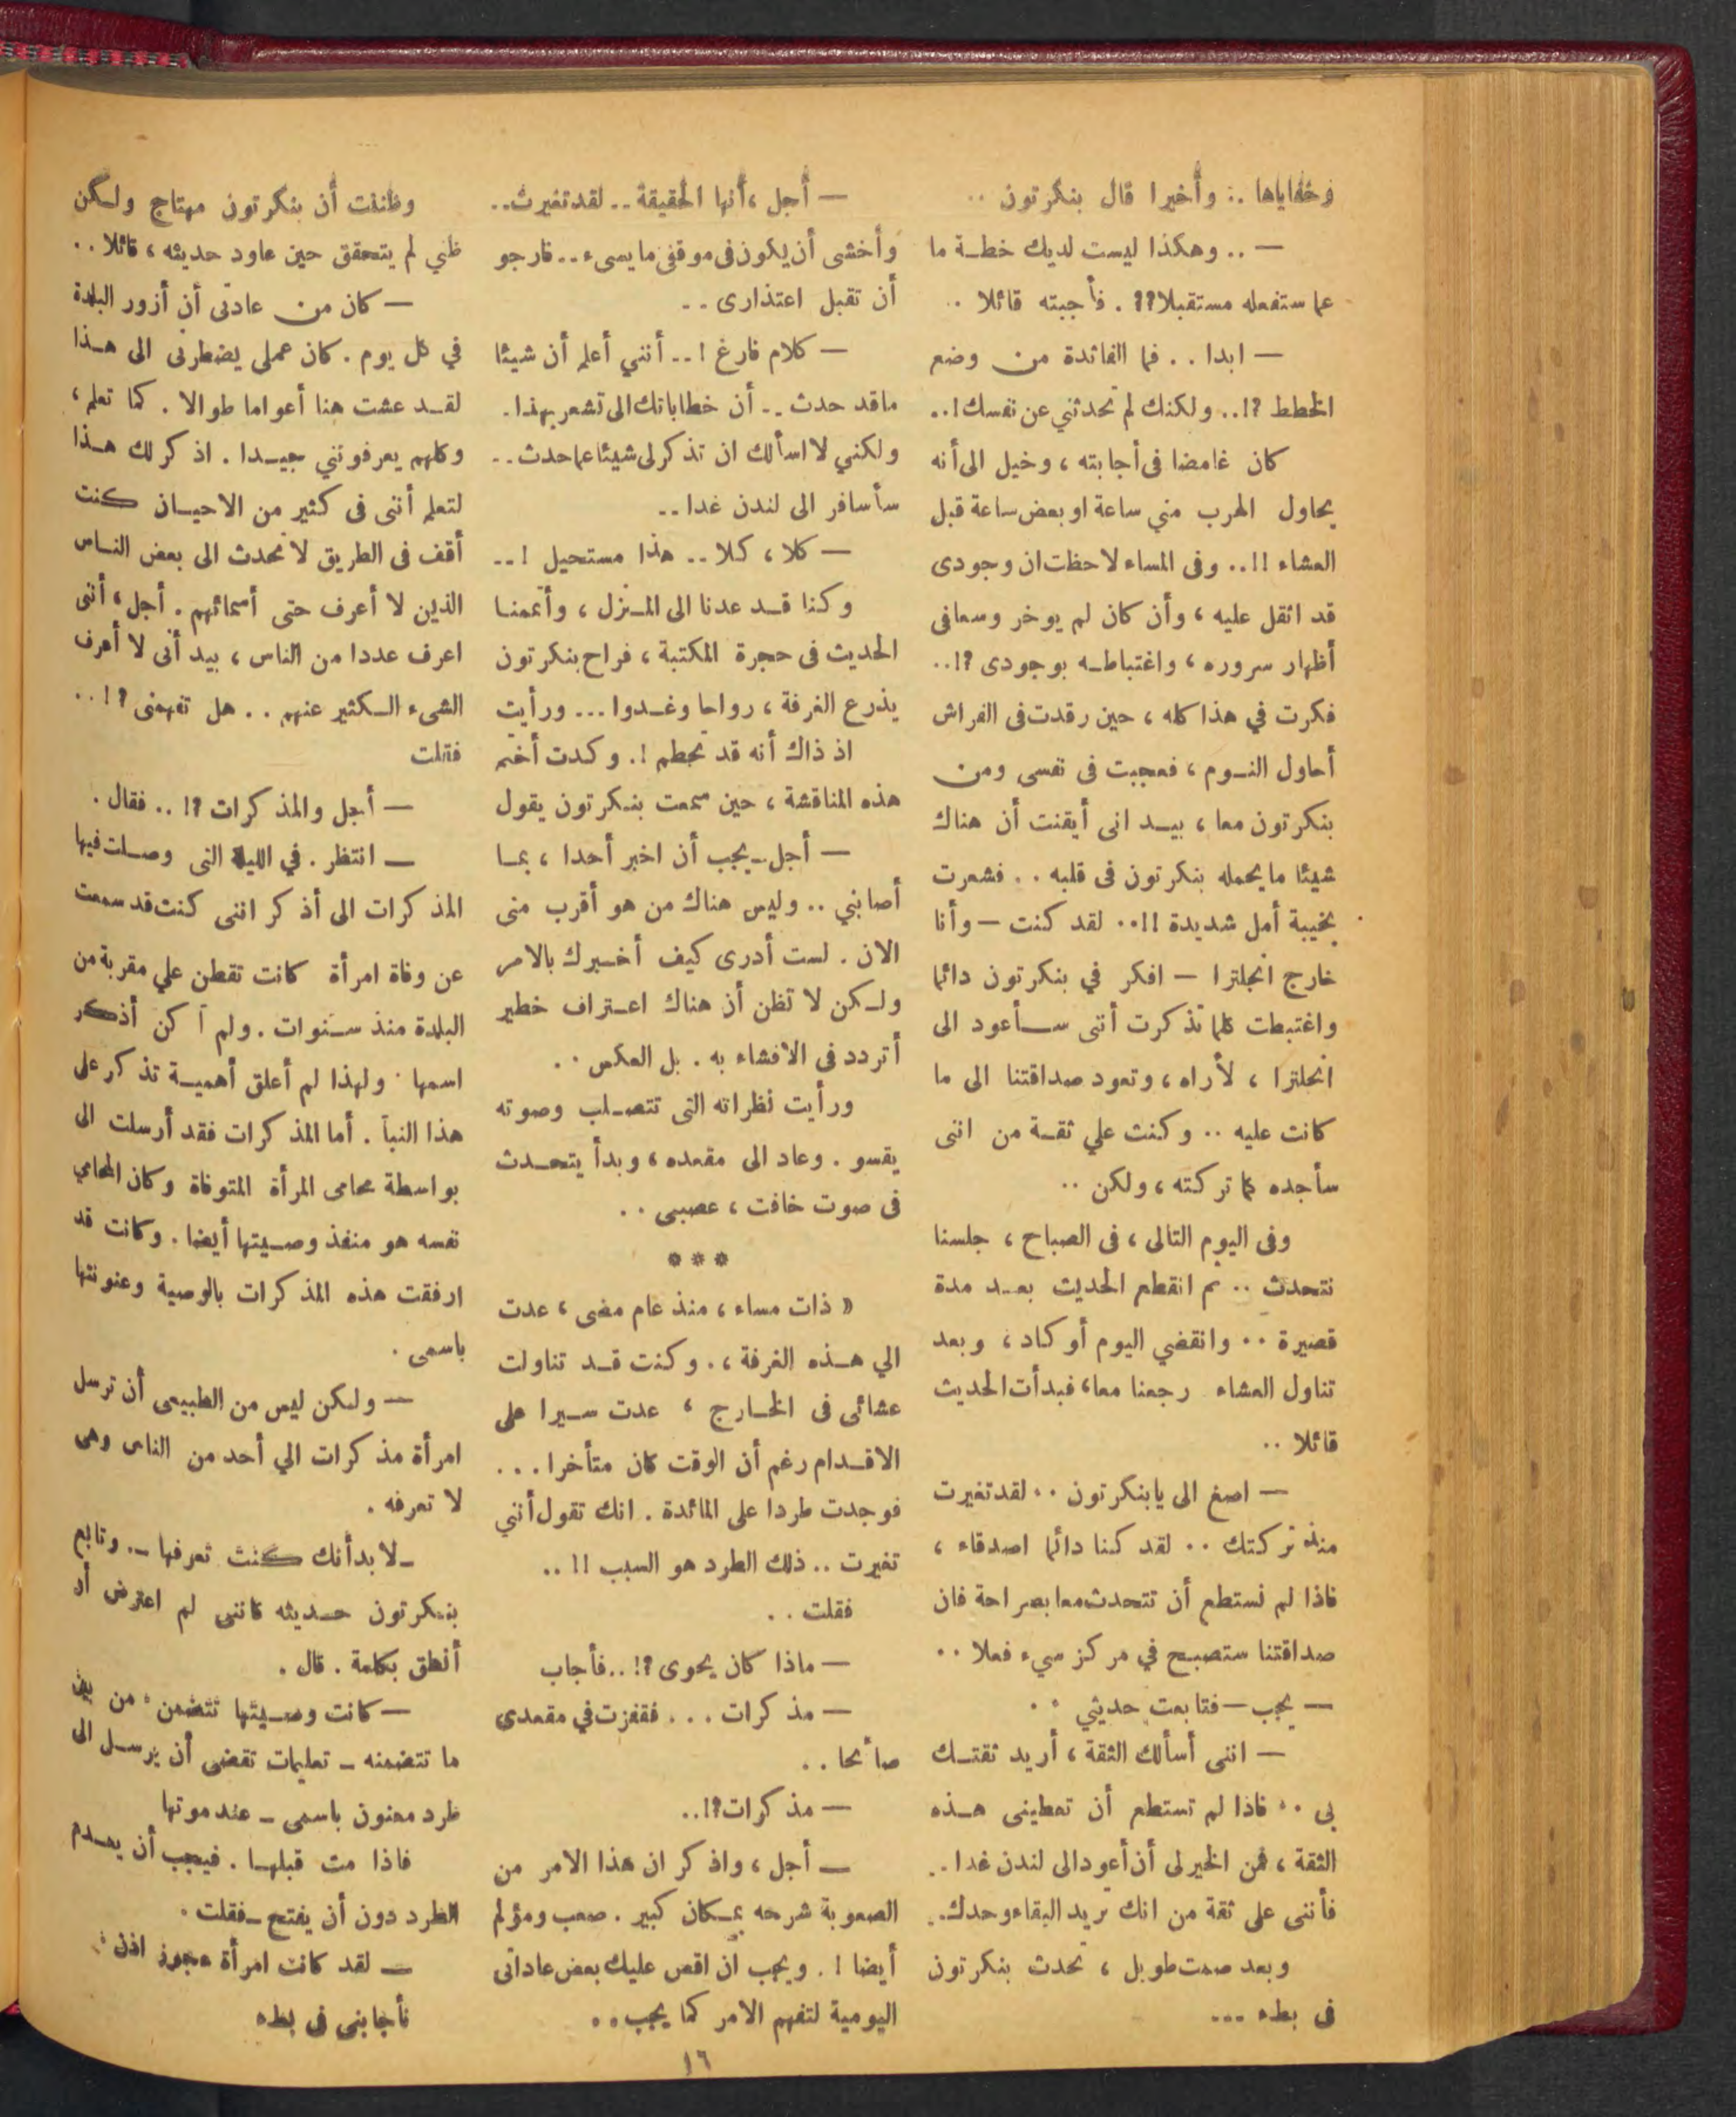 وخفاياها .: وأخيرا قال بنكرتون ..
— .. وهكذا ليست لديك خطة ما
عما ستفعله مستقبلا؟؟ . فأجبته قائلا ..
— ابدا . . فما الفائدة من وضع
الخطط ؟!.. ولكنك لم تحدثني عن نفسك!..
كان غامضا فى أجابته ، وخيل الى أنه
يحاول الهرب مني ساعة او بعض ساعة قبل
العشاء !!.. وفى المساء لاحظت ان وجودى
قد اثقل عليه ، وأن كان لم يوخر وسعا فى
أظهار سروره ، واغتباطه بوجودى ؟!..
فكرت في هذا كله ، حين رقدت فى الفراش
أحاول النوم ، فعجبت فى نفسى ومن
بنكرتون معا ، بيد انى أيقنت أن هناك
شيئا ما يحمله بنكرتون فى قلبه . . فشعرت
بخيبة أمل شديدة !!.. لقد كنت — وأنا
خارج انجلترا — افكر في بنكرتون دائما
واغتبطت كلما تذكرت أننى سأعود الى
انجلترا ، لأراه ، وتعود صداقتنا الى ما
كانت عليه .. وكنت علي ثقة من اننى
سأجده كما تركته ، ولكن ..
وفى اليوم التالى ، فى الصباح ، جلسنا
نتحدث .. ثم انقطع الحديث بعد مدة
قصيرة .. وانقضي اليوم أو كاد ، وبعد
تناول العشاء رجعنا معا، فبدأت الحديث
قائلا ..
— اصغ الى يا بنكرتون .. لقد تغيرت
منذ تركتك .. لقد كنا دائما اصدقاء ،
فاذا لم نستطع أن نتحدث معا بصراحة فان
صداقتنا ستصبح في مركز سيء فعلا ..
— يجب — فتابعت حديثي ..
— اننى أسألك الثقة ، أريد ثقتك
بى .. فاذا لم تستطع أن تعطينى هذه
الثقة ، فمن الخير لى أن أعود الى لندن غدا ..
فأننى على ثقة من انك تريد البقاء وحدك..
وبعد صمت طويل ، تحدث بنكرتون
فى بطء ...
— أجل ، أنها الحقيقة .. لقد تغيرت..
وأخشى أن يكون فى موقفى ما يسىء .. فارجو
أن تقبل اعتذارى ..
— كلام فارغ ! .. أنني أعلم أن شيئا
ما قد حدث .. أن خطاباتك الى تشعر بهذا.
ولكني لا اسألك ان تذكر لى شيئا عما حدث ..
سأسافر الى لندن غدا ..
— كلا ، كلا .. هذا مستحيل ! ..
وكنا قد عدنا الى المنزل ، وأتممنا
الحديث فى حجرة المكتبة ، فراح بنكرتون
يذرع الغرفة ، رواحا وغدوا ... ورأيت
اذ ذاك أنه قد تحطم !. وكدت أختم
هذه المناقشة ، حين سمعت بنكرتون يقول
— أجل .. يجب أن اخبر أحدا ، بما
أصابني .. وليس هناك من هو أقرب منى
الان . لست أدرى كيف أخبرك بالامر
ولكن لا تظن أن هناك اعتراف خطير
أتردد فى الافشاء به . بل العكس ..
ورأيت نظراته التى تتصلب وصوته
يقسو . وعاد الى مقعده ، وبدأ يتحدث
فى صوت خافت ، عصبى ..
***
« ذات مساء ، منذ عام مضى ، عدت
الي هذه الغرفة ،. وكنت قد تناولت
عشائى فى الخارج ، عدت سيرا على
الاقدام رغم أن الوقت كان متأخرا ...
فوجدت طردا على المائدة . انك تقول أنني
تغيرت .. ذلك الطرد هو السبب !! ..
فقلت ..
— ماذا كان يحوى ؟! .. فأجاب
— مذكرات ... فقفزت في مقعدى
صائحا ..
— مذكرات؟!..
— أجل ، واذكر ان هذا الامر من
الصعوبة شرحه بمكان كبير . صعب ومؤلم
أيضا !. ويجب ان اقص عليك بعض عاداتى
اليومية لتفهم الامر كما يجب ..
وظننت أن بنكرتون مهتاج ولكن
ظني لم يتحقق حين عاود حديثه ، قائلا ..
— كان من عادتى أن أزور البلدة
في كل يوم . كان عملى يضطرنى الى هذا
لقد عشت هنا أعواما طوالا . كما تعلم ،
وكلهم يعرفونني جيدا . اذكر لك هذا
لتعلم أننى فى كثير من الاحيان كنت
أقف فى الطريق لاتحدث الى بعض الناس
الذين لا أعرف حتى أسمائهم . أجل ، أننى
اعرف عددا من الناس ، بيد أنى لا أعرف
الشىء الكثير عنهم .. هل تفهمنى ؟!..
فقلت
— أجل والمذكرات ؟! .. فقال .
— انتظر . في الليلة التى وصلت فيها
المذكرات الى أذكر اننى كنت قد سمعت
عن وفاة امرأة كانت تقطن علي مقربة من
البلدة منذ سنوات . ولم آكن أذكر
اسمها . ولهذا لم أعلق أهمية تذكر على
هذا النبأ . أما المذكرات فقد أرسلت الى
بواسطة محامى المرأة المتوفاة وكان المحامي
نفسه هو منفذ وصيتها أيضا . وكانت قد
ارفقت هذه المذكرات بالوصية وعنونتها
باسمى .
— ولكن ليس من الطبيعى أن ترسل
امرأة مذكرات الي أحد من الناس وهى
لا تعرفه .
— لا بد أنك كنت تعرفها —. وتابع
بنكرتون حديثه كاننى لم اعترض أو
أنطق بكلمة . قال .
— كانت وصيتها تتضمن ، من بين
ما تتضمنه — تعليمات تقضى أن يرسل الى
طرد معنون باسمى — عند موتها
فاذا مت قبلها . فيجب أن يعدم
الطرد دون أن يفتح — فقلت .
— لقد كانت امرأة عجوز اذن ،.
فأجابنى فى بطء
١٦